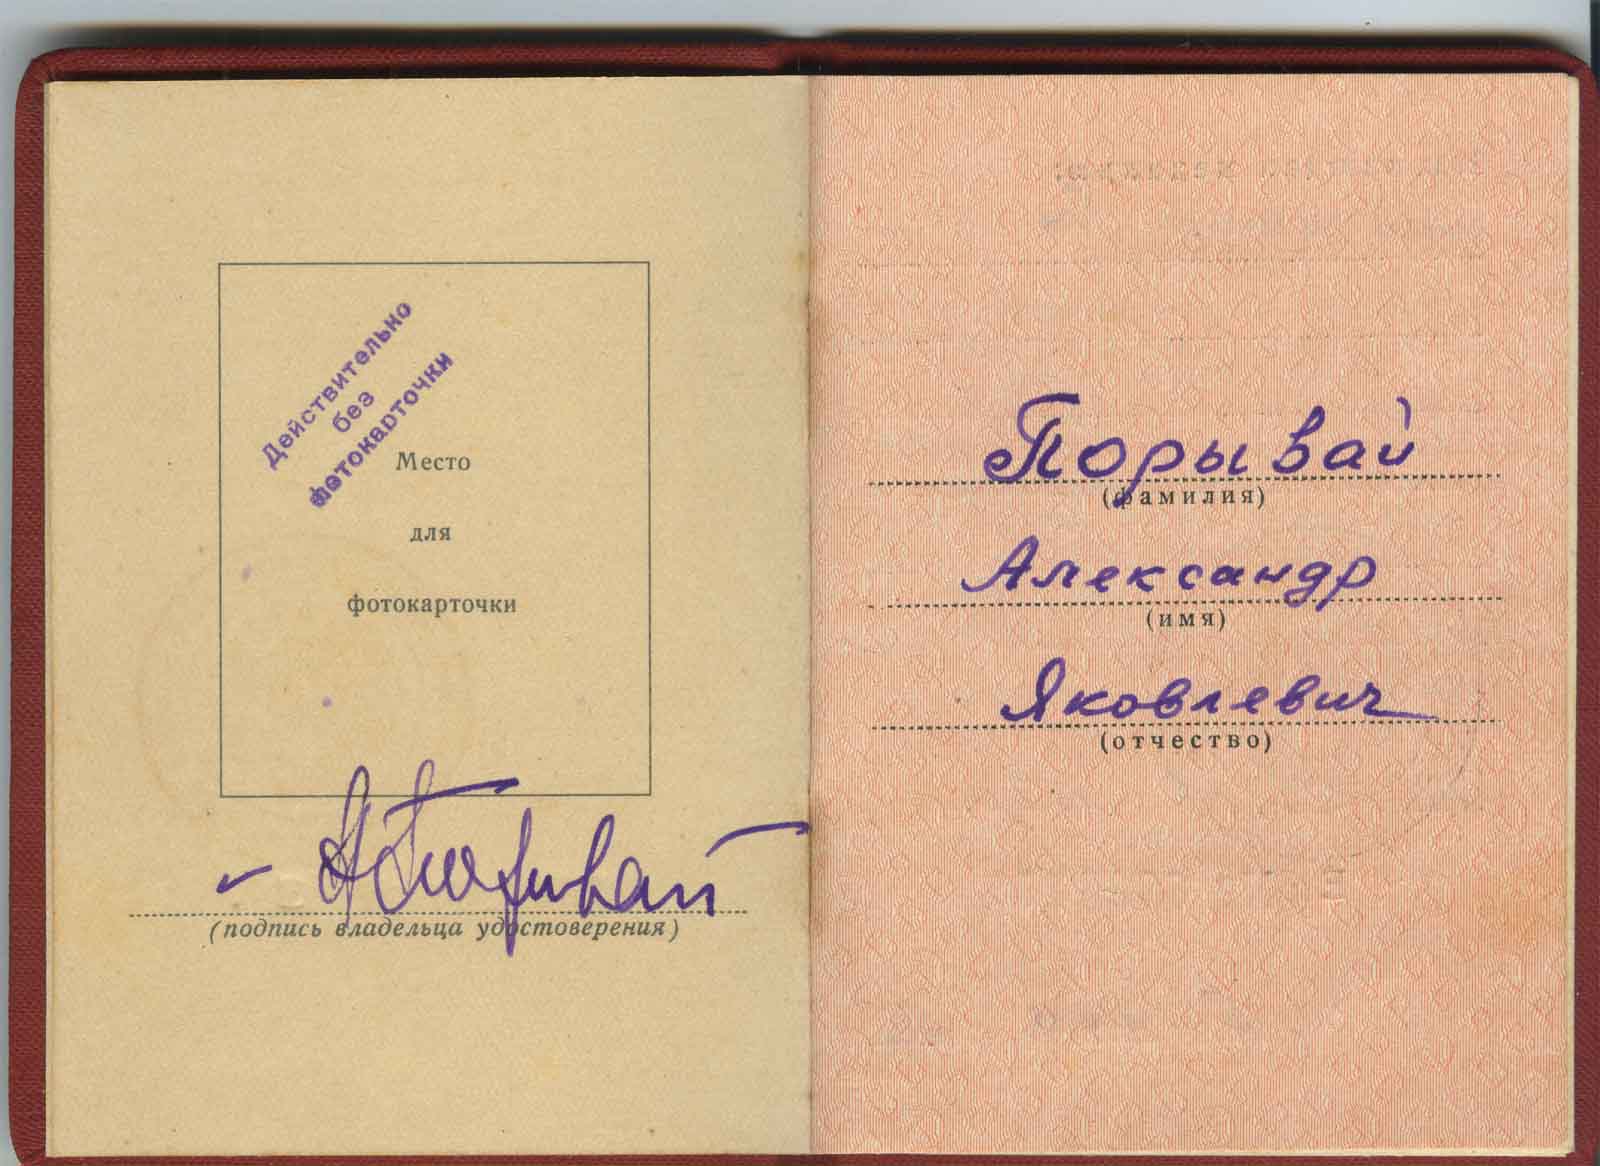 Действительно
без
фотокарточки
Место
для
фотокарточки
Порывай
(подпись владельца удостоверения)
Порывай
(фамилия)
Александр
(имя)
Яковлевич
(отчество)